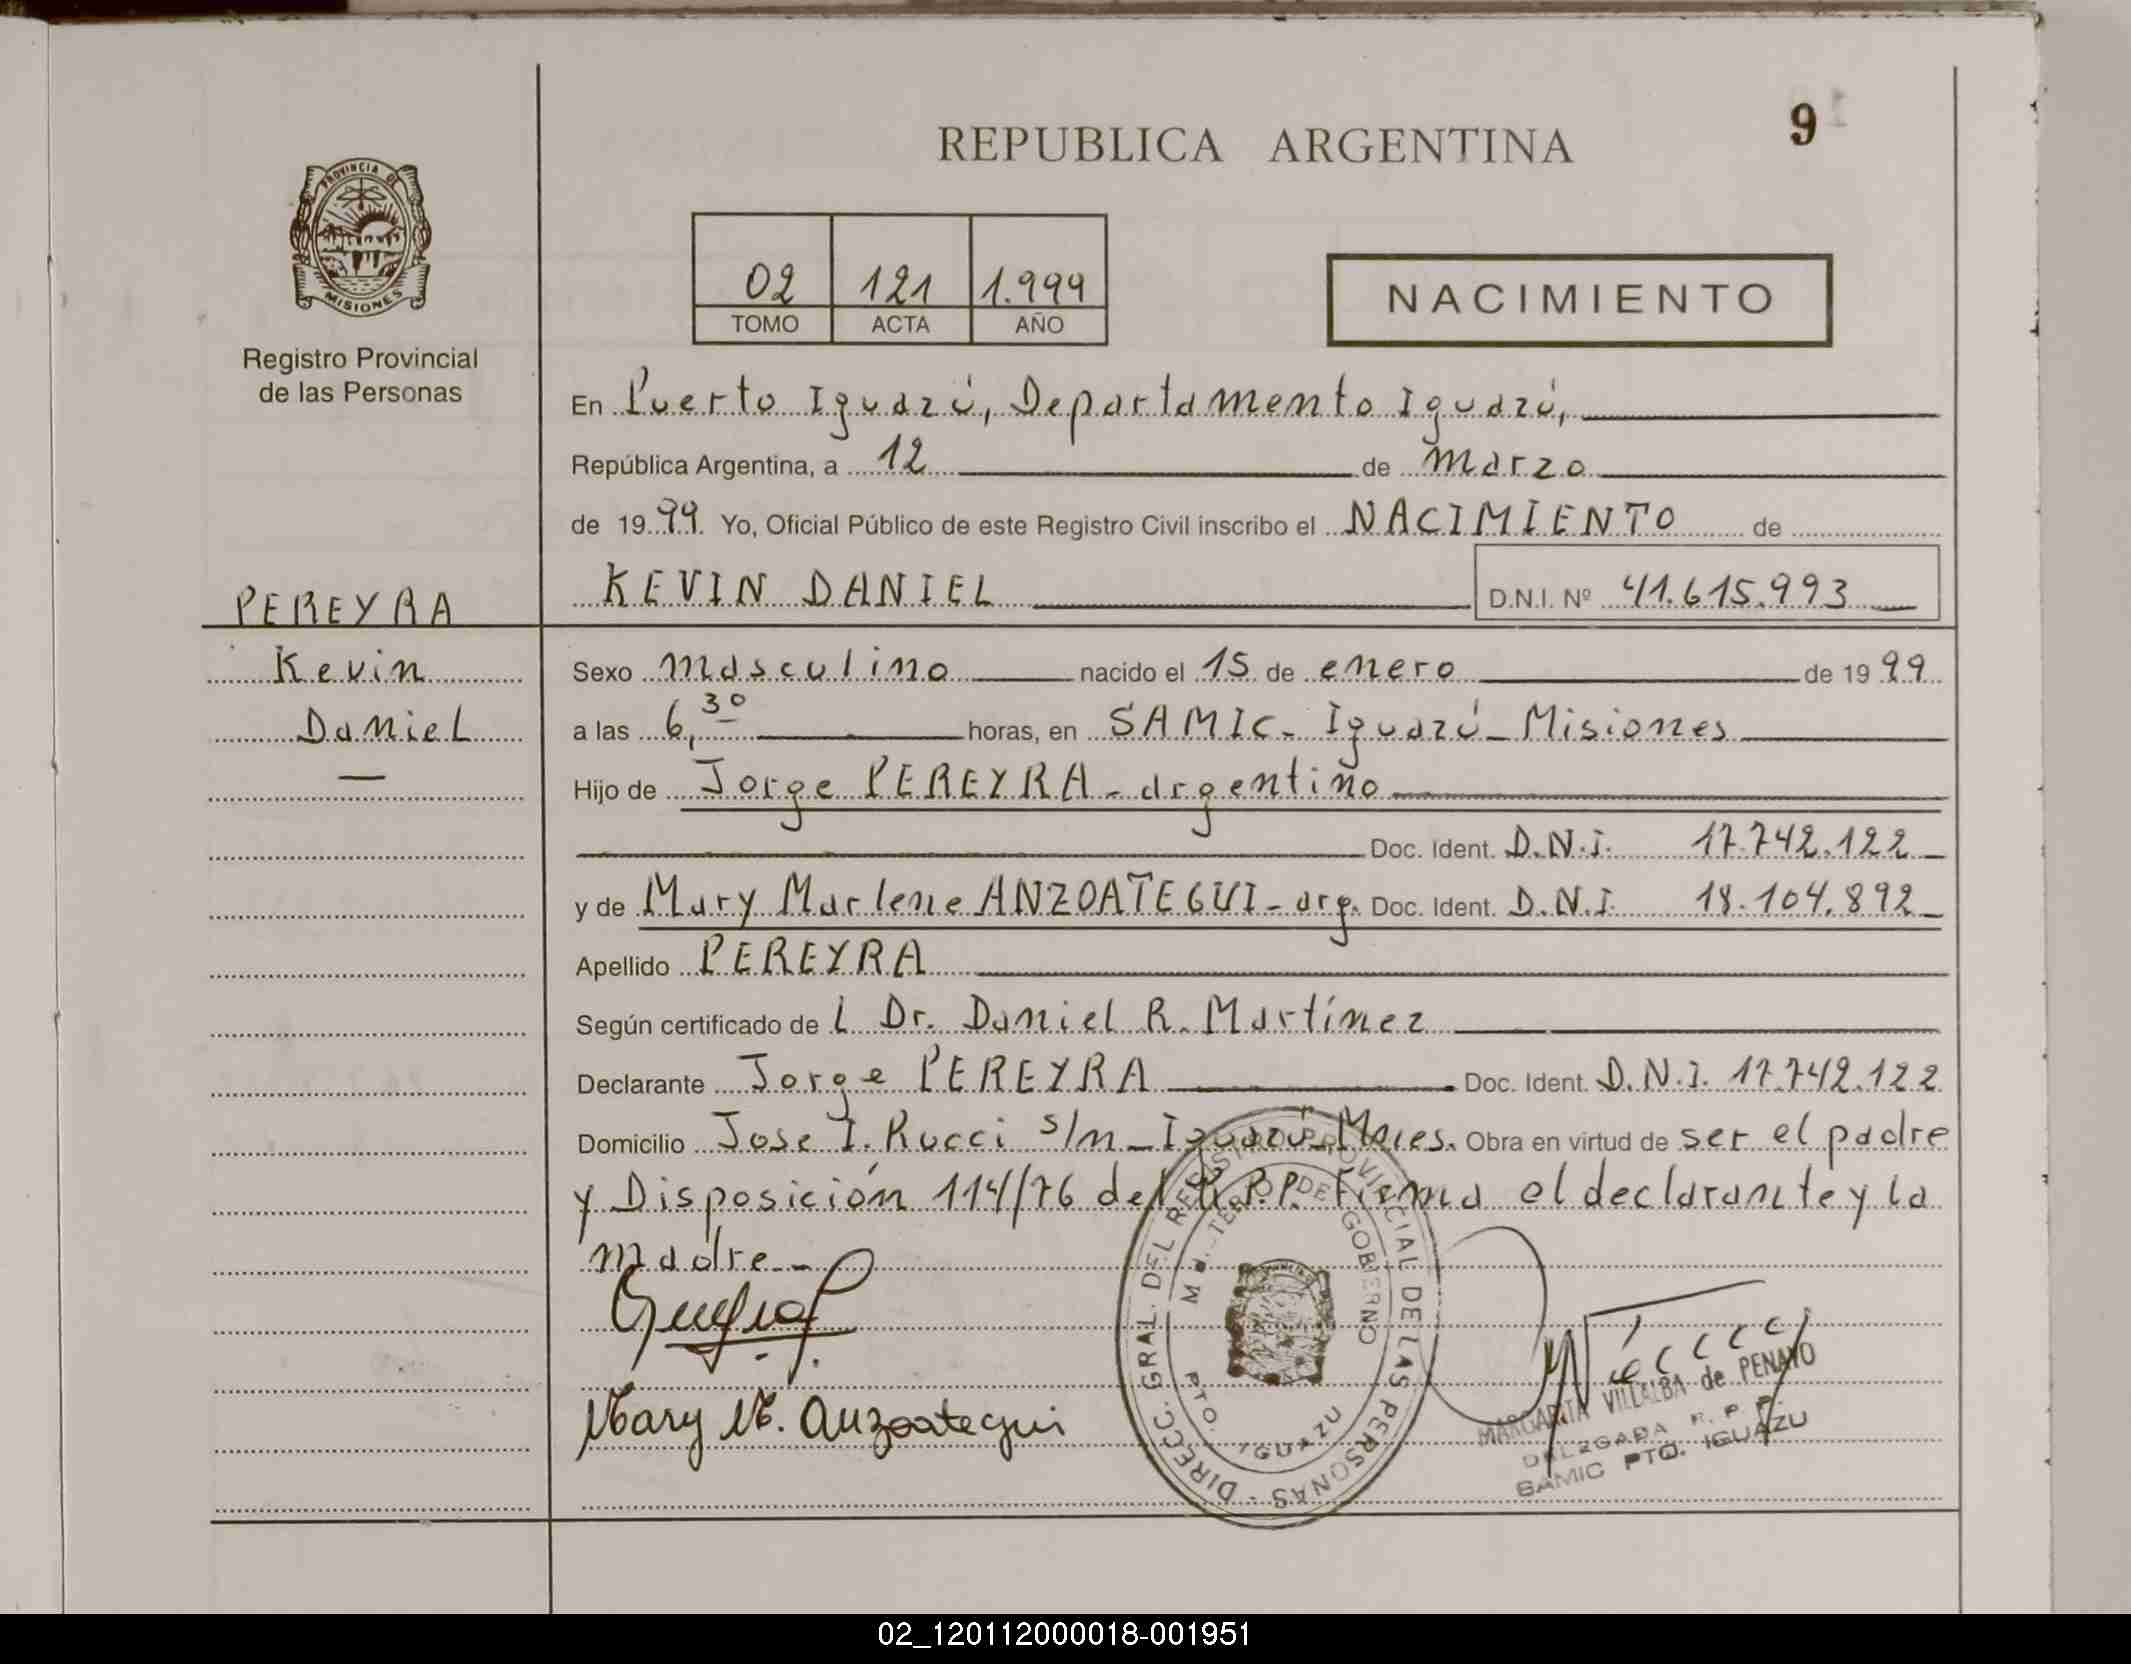 9
REPUBLICA ARGENTINA
PROVINCIA DE
MISIONES
Registro Provincial
de las Personas
02 121 1.999
TOMO ACTA AÑO
NACIMIENTO
En Puerto Iguazú, Departamento Iguazú,
República Argentina, a 12 de marzo
de 1999. Yo, Oficial Público de este Registro Civil inscribo el NACIMIENTO de
PEREYRA
KEVIN DANIEL D.N.I. Nº 41.615.993
Kevin
Sexo masculino nacido el 15 de enero de 1999
Daniel
a las 6,30 horas, en SAMIC - Iguazú - Misiones
Hijo de Jorge PEREYRA - argentino
Doc. Ident. D.N.I. 17.742.122
y de Mary Marlene ANZOATEGUI - arg. Doc. Ident. D.N.I. 18.104.892
Apellido PEREYRA
Según certificado de L Dr. Daniel R. Martínez
Declarante Jorge PEREYRA Doc. Ident. D.N.I. 17.742.122
Domicilio Jose I. Rucci s/n - Iguazú - Mnes. Obra en virtud de ser el padre
y Disposición 114/76 del R.P.P. Firma el declarante y la
madre -
Mary M. Anzoategui
DIRECC. GRAL. DEL REGISTRO PROVINCIAL DE LAS PERSONAS -
MINISTERIO DE GOBIERNO
PTO. IGUAZU
MARGARITA VILLALBA de PENAYO
DELEGADA R. P. P.
SAMIC PTO. IGUAZU
02_120112000018-001951